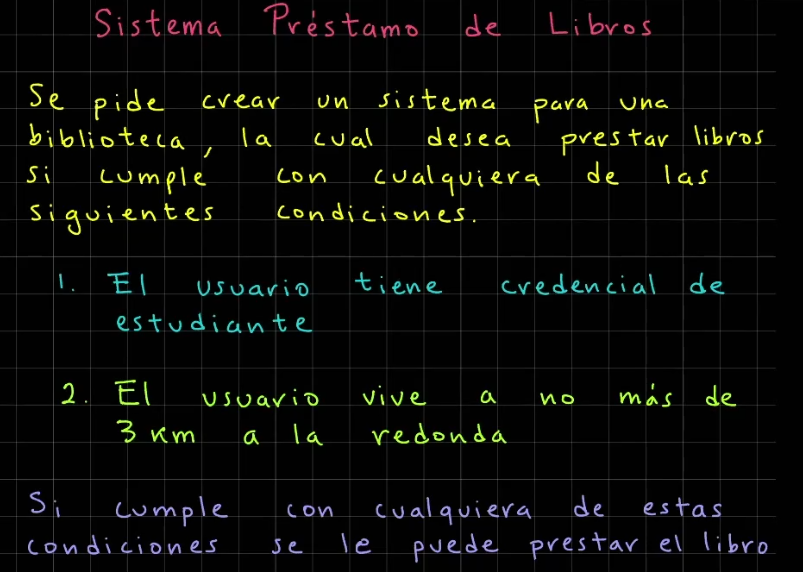 Sistema Préstamo de Libros
Se pide crear un sistema para una
biblioteca, la cual desea prestar libros
si cumple con cualquiera de las
siguientes condiciones.
1. El usuario tiene credencial de
estudiante
2. El usuario vive a no más de
3 km a la redonda
Si cumple con cualquiera de estas
condiciones se le puede prestar el libro